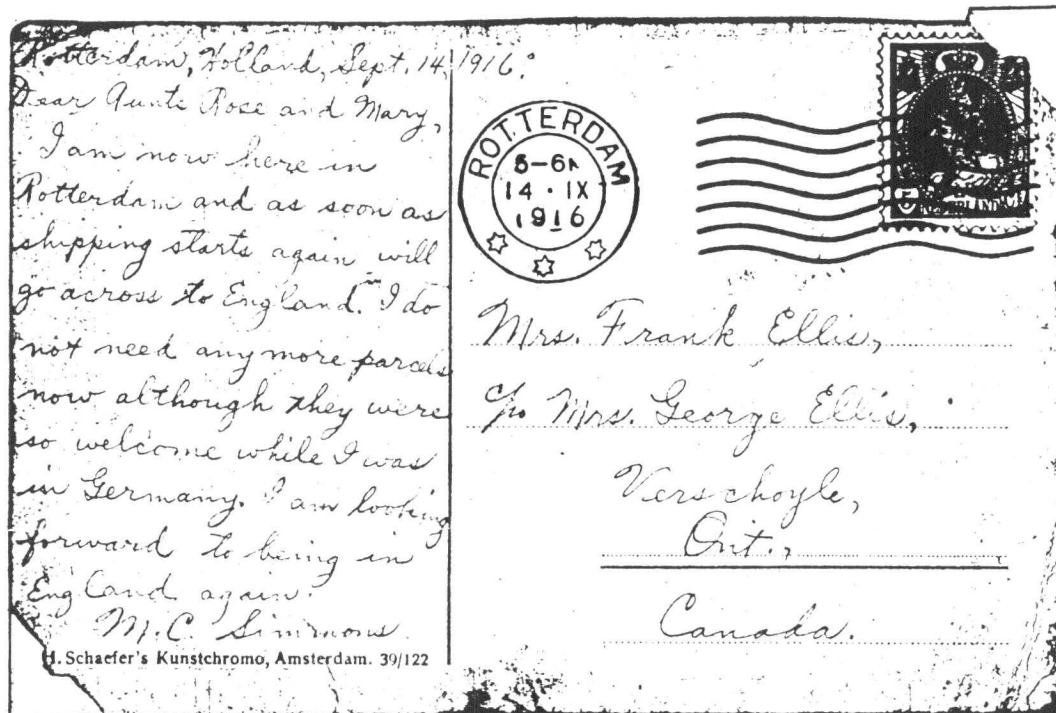 Rotterdam, Holland, Sept. 14, 1916.
Dear Aunts Rose and Mary,
I am now here in
Rotterdam and as soon as
shipping starts again will
go across to England. I do
not need any more parcels
now although they were
so welcome while I was
in Germany. I am looking
forward to being in
England again.
M. C. Simmons
H. Schaefer's Kunstchromo, Amsterdam. 39/122
ROTTERDAM
14 · IX
1916
5
NEDERLAND
Mrs. Frank Ellis,
c/o Mrs. George Ellis,
Verschoyle,
Ont.,
Canada.